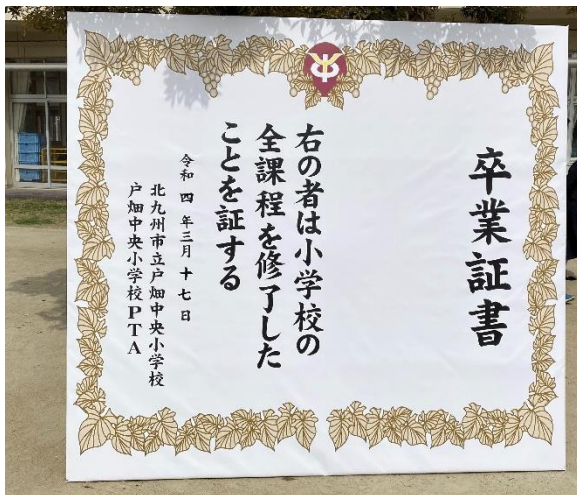 卒業証書
右の者は小学校の
全課程を修了した
ことを証する
令和四年三月十七日
北九州市立戸畑中央小学校
戸畑中央小学校PTA